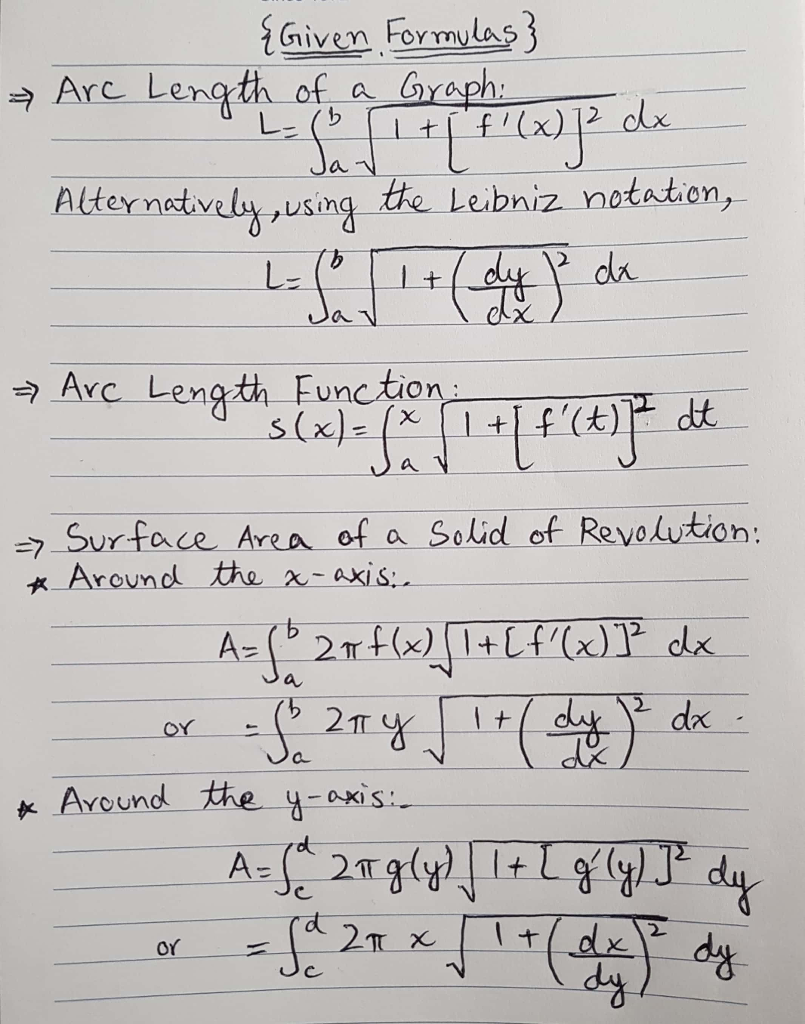 {Given Formulas}
⇒ Arc Length of a Graph:
L=∫_a^b √(1+[f'(x)]²) dx
Alternatively, using the Leibniz notation,
L=∫_a^b √(1+(dy/dx)²) dx
⇒ Arc Length Function:
s(x)=∫_a^x √(1+[f'(t)]²) dt
⇒ Surface Area of a Solid of Revolution:
* Around the x-axis:-
A=∫_a^b 2πf(x)√(1+[f'(x)]²) dx
or =∫_a^b 2πy√(1+(dy/dx)²) dx.
* Around the y-axis:-
A=∫_c^d 2πg(y)√(1+[g'(y)]²) dy
or =∫_c^d 2πx√(1+(dx/dy)²) dy